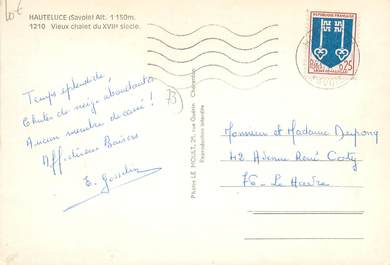 10€
HAUTELUCE (Savoie) Alt. 1 150m.
1210 Vieux chalet du XVIIe siècle.
73)
Temps splendide,
Chutes de neige abondantes
Aucun membre de cassé !
Affectueux Baisers
E. Gosselin
Photos LE MOULT, 21, rue Guérin
Reproduction interdite
RÉPUBLIQUE FRANÇAISE
0,25
MONT-DE-MARSAN
Monsieur et Madame Dupony
42 Avenue René Coty
76 - Le Havre